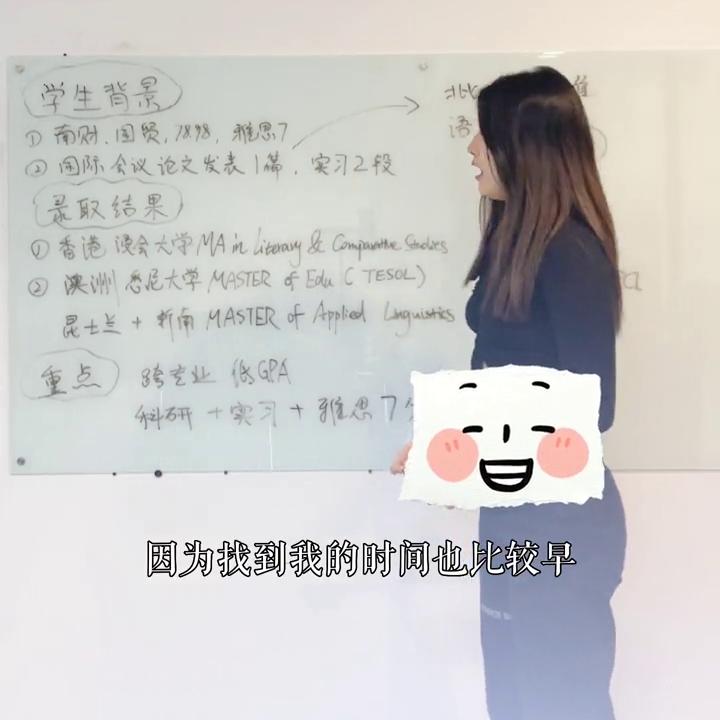 学生背景
① 南财、国贸、78.98, 雅思7
② 国际会议论文发表1篇, 实习2段
录取结果
① 香港浸会大学MA in Literary & Comparative Studies
② 澳洲 悉尼大学 MASTER of Edu ( TESOL)
昆士兰 + 新南 MASTER of Applied Linguistics
重点 跨专业 低GPA
科研 + 实习 + 雅思7
语
因为找到我的时间也比较早